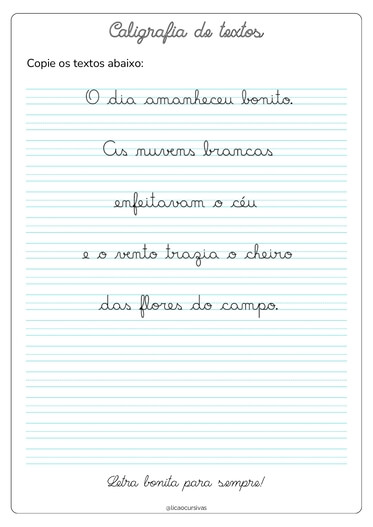 Caligrafia de textos
Copie os textos abaixo:
O dia amanheceu bonito.
As nuvens brancas
enfeitavam o céu
e o vento trazia o cheiro
das flores do campo.
Letra bonita para sempre!
@licaocursivas